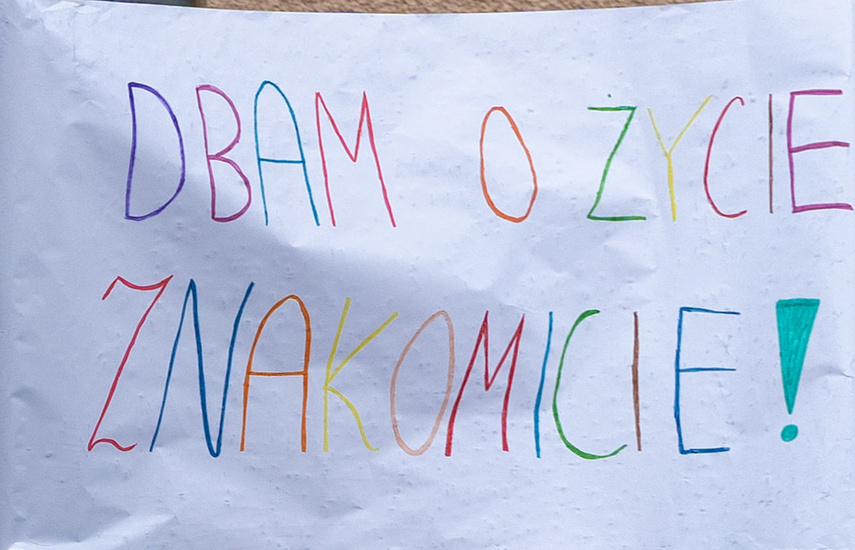 DBAM O ŻYCIE
ZNAKOMICIE!